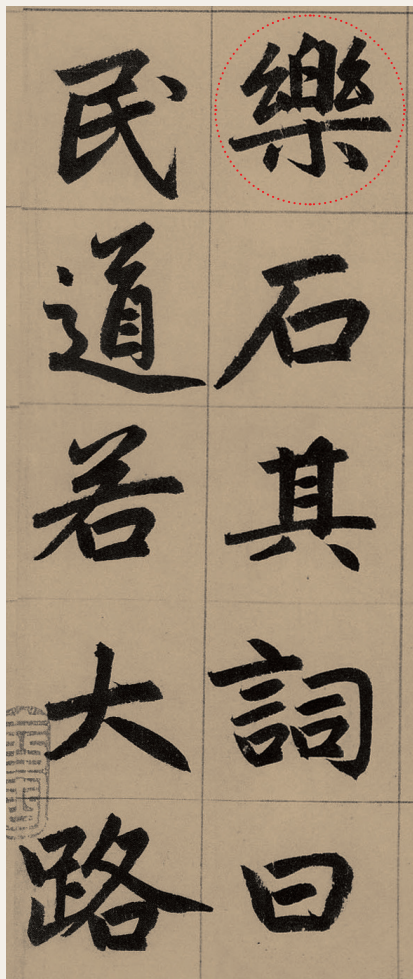 樂石其詞曰
民道若大路